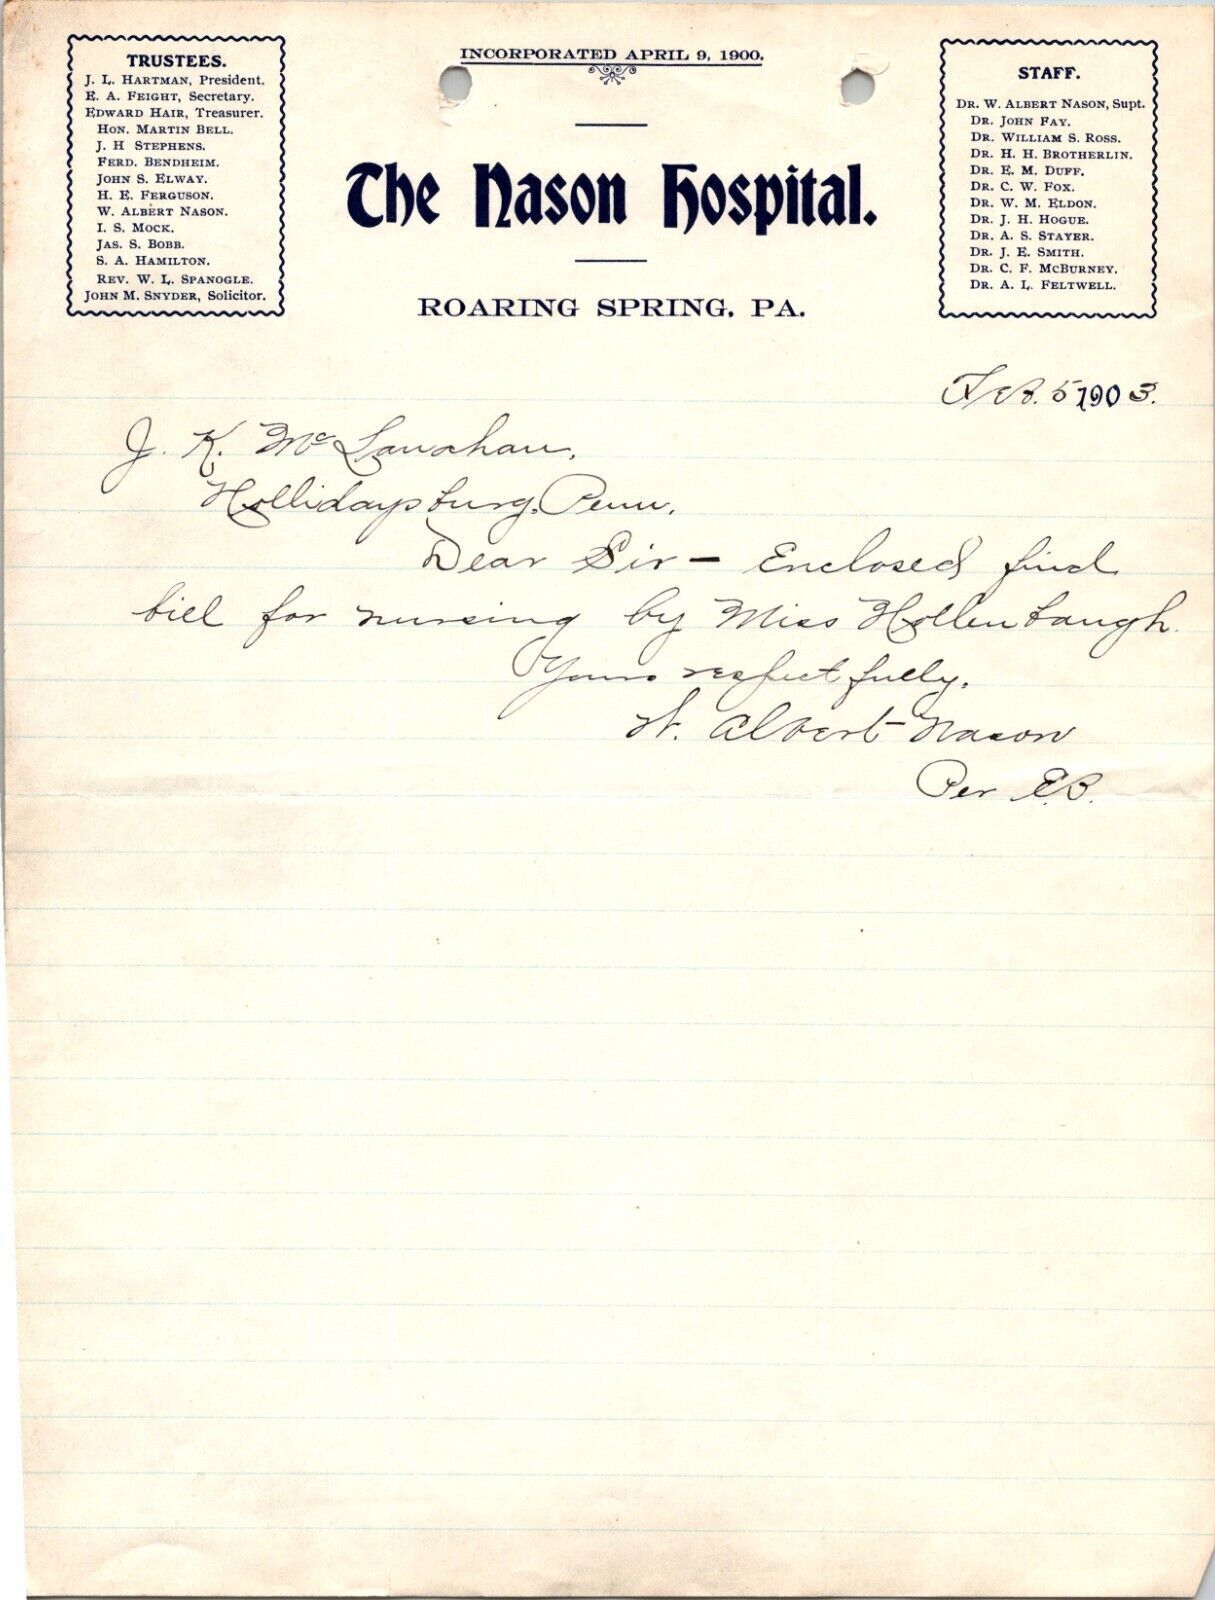 TRUSTEES.
J. L. HARTMAN, President.
E. A. FEIGHT, Secretary.
EDWARD HAIR, Treasurer.
HON. MARTIN BELL.
J. H STEPHENS.
FERD. BENDHEIM.
JOHN S. ELWAY.
H. E. FERGUSON.
W. ALBERT NASON.
I. S. MOCK.
JAS. S. BOBB.
S. A. HAMILTON.
REV. W. L. SPANOGLE.
JOHN M. SNYDER, Solicitor.
INCORPORATED APRIL 9, 1900.
The Nason Hospital.
ROARING SPRING, PA.
STAFF.
DR. W. ALBERT NASON, Supt.
DR. JOHN FAY.
DR. WILLIAM S. ROSS.
DR. H. H. BROTHERLIN.
DR. E. M. DUFF.
DR. C. W. FOX.
DR. W. M. ELDON.
DR. J. H. HOGUE.
DR. A. S. STAYER.
DR. J. E. SMITH.
DR. C. F. MCBURNEY.
DR. A. L. FELTWELL.
Feb. 5 1903.
J. K. McLanahan,
Hollidaysburg, Penn.
Dear Sir – Enclosed find
bill for nursing by Miss Hollenbaugh.
Yours respectfully,
W. Albert Nason
Per E.B.